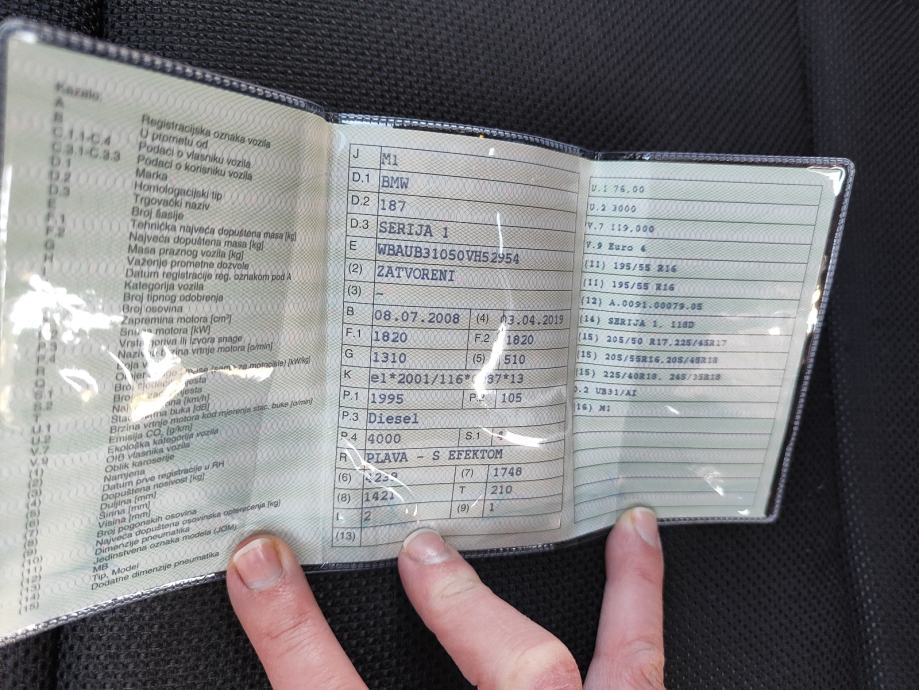 Kazalo:
A Registracijska oznaka vozila
B U prometu od
C.1.1-C.4 Podaci o vlasniku vozila
C.3.1-C.3.3 Podaci o korisniku vozila
D.1 Marka
D.2 Homologacijski tip
D.3 Trgovački naziv
Broj šasije
Tehnička najveća dopuštena masa [kg]
Najveća dopuštena masa [kg]
Masa praznog vozila [kg]
Važenje prometne dozvole
Datum registracije reg. oznakom pod A
Kategorija vozila
Broj tipnog odobrenja
Broj osovina
Zapremina motora [cm³]
Snaga motora [kW]
Vrsta goriva ili izvora snage
Broj
mjesta
buka [dB]
Brzina vrtnje motora kod mjerenja stac. buke [o/min]
Emisija CO₂ [g/km]
Ekološka kategorija vozila
OIB vlasnika vozila
Oblik karoserije
Namjena
Datum prve registracije u RH
Dopuštena nosivost [kg]
Duljina [mm]
Širina [mm]
Visina [mm]
Broj pogonskih osovina
Najveća dopuštena osovinska opterećenja [kg]
Dimenzije pneumatika
Jedinstvena oznaka modela (JOM)
MB
Tip, Model
Dodatne dimenzije pneumatika
J M1
D.1 BMW
D.2 187
D.3 SERIJA 1
E WBAUB31050VH52954
(2) ZATVORENI
(3) –
B 08.07.2008 (4) 03.04.2019
F.1 1820 F.2 1820
G 1310 (5) 510
K
P.1 1995 105
P.3 Diesel
P.4 4000 S.1
R PLAVA - S EFEKTOM
(6) (7) 1748
(8) 1421 T 210
L 2 (9) 1
(13)
U.1 76,00
U.2 3000
V.7 119,000
V.9 Euro 4
(11) 195/55 R16
(11) 195/55 R16
(12) A.0091.00079.05
(14) SERIJA 1, 118D
(15) 205/50 R17,225/45R17
(15) 205/55R16,205/45R18
(15) 225/40R18, 245/35R18
D.2 UB31/AI
(16) M1